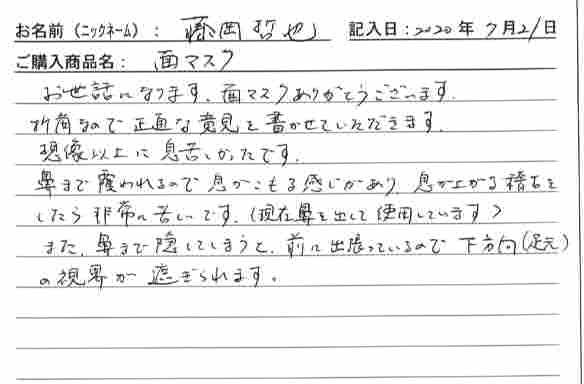 お名前（ニックネーム）： 藤岡哲也 記入日：2020年7月21日
ご購入商品名： 面マスク
お世話になります。面マスクありがとうございます。
折角なので正直な意見を書かせていただきます。
想像以上に息苦しかったです。
鼻まで覆われるので息がこもる感じがあり、息が上がる稽古を
したら非常に苦しいです。（現在鼻を出して使用しています）
また、鼻まで隠してしまうと、前に出張っているので下方向（足元）
の視界が遮ぎられます。